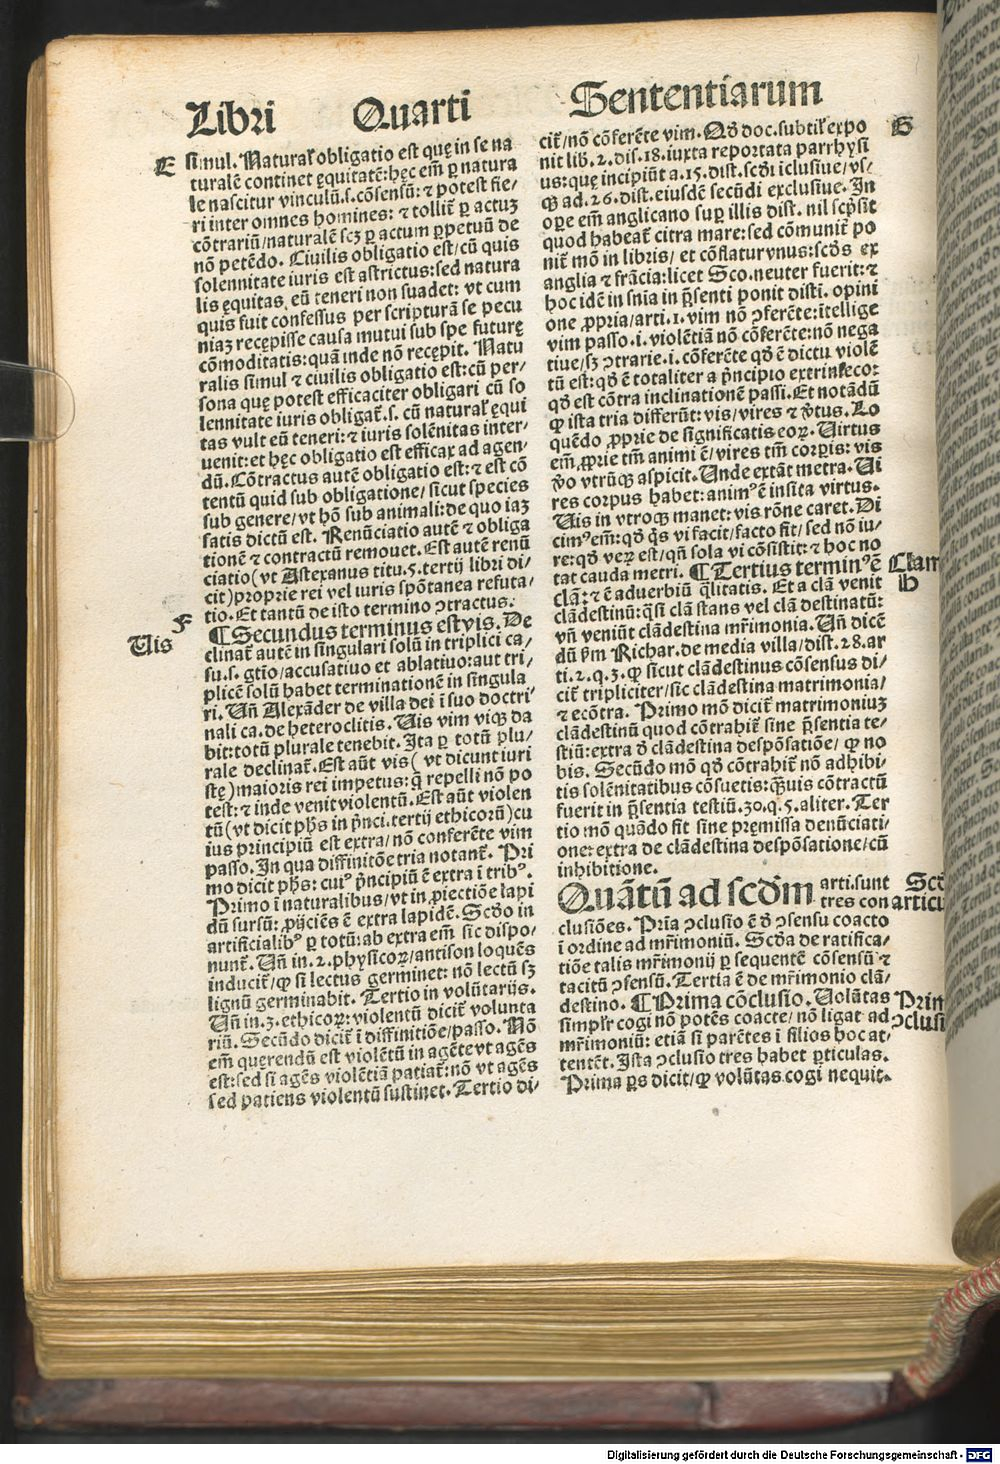 Libri Quarti Sententiarum
E
simul. Natural' obligatio est quę in se na
turalē continet ęquitatē: hęc em̄ ꝑ natura
le nascitur vinculū. s. cōsensū: ⁊ potest fie/
ri inter omnes homines: ⁊ tollit᷑ ꝑ actuꝫ
cōtrariū/naturalē scꝫ ꝑ actum ꝑpetuū de
nō petēdo. Civilis obligatio est/cū quis
solennitate iuris est astrictus: sed natura
lis ęquitas eū teneri non suadet: vt cum
quis fuit confessus per scripturā se pecu
niaꝫ recępisse causa mutui sub spe futurę
cōmoditatis: quā inde nō recępit. Natu
ralis simul ⁊ civilis obligatio est: cū per/
sona quę potest efficaciter obligari cū so
lennitate iuris obligat᷑. s. cū natural' ęqui
tas vult eū teneri: ⁊ iuris solēnitas inter/
uenit: et hęc obligatio est efficax ad agen/
dū. Cōtractus autē obligatio est: ⁊ est cō
tentū quid sub obligatione/sicut species
sub genere/vt hō sub animali: de quo iaꝫ
satis dictū est. Renūciatio autē ⁊ obliga
tionē ⁊ contractū remouet. Est autē renū
ciatio (vt Astexanus titu. 5. tertij libri di/
cit) proprie rei vel iuris spōtanea refuta/
tio. Et tantū de isto termino ꝯtractus.
F
Uis
¶ Secundus terminus est vis. De
clinat᷑ autē in singulari solū in triplici ca/
su. s. gtio/accusatiuo et ablatiuo: aut tri/
plicē solū habet terminationē in singula
ri. Uñ Alexāder de villa dei ī suo doctri/
nali ca. de heteroclitis. Uis vim viqꝫ da
bit: totū plurale tenebit. Ita ꝑ totū plu/
rale declinat᷑. Est aūt vis (vt dicunt iuri
stę) maioris rei impetus: q̄ repelli nō po
test: ⁊ inde venit violentū. Est aūt violen
tū (vt dicit phs in p̄nci. tertij ethicorū) cu
ius principiū est extra/nō conferēte vim
passo. In qua diffinitiōe tria notant᷑. Pri
mo dicit phs: cuiꝰ p̄ncipiū ē extra ī tribꝰ.
Primo ī naturalibus/vt in ꝓiectiōe lapi
dū sursū: ꝓijciēs ē extra lapidē. Scd̄o in
artificialibꝰ ꝑ totū: ab extra em̄ sic dispo/
nunt᷑. Uñ in. 2. physicoꝝ/antison loquēs
inducit᷑/ꝙ si lectus germinet: nō lectū sꝫ
lignū germinabit. Tertio in volūtarijs.
Uñ in. 3. ethicoꝝ: violentū dicit᷑ volunta
riū. Secūdo dicit᷑ ī diffinitiōe/passo. Nō
em̄ querendū est violētū in agēte vt agēs
est: sed si agēs violētiā patiat᷑: nō vt agēs
sed patiens violentū sustinet. Tertio di/
G
cit᷑/nō cōferēte vim. Qd̄ doc. subtil' expo
nit lib. 2. dis. 18. iuxta reportata parrhysi
us: quę incipiūt a. 15. dist. scd̄i īclusiue/vs/
qꝫ ad. 26. dist. eiusdē secūdi exclusiue. In
oꝑe em̄ anglicano suꝑ illis dist. nil scp̄sit
quod habeat᷑ citra mare: sed cōmunit᷑ po
nit᷑ mō in libris/et cōflatur vnus: scd̄s ex
anglia ⁊ frācia: licet Sco. neuter fuerit: ⁊
hoc idē in snīa in p̄senti ponit disti. opini
one ꝓpria/arti. 1. vim nō ꝯferēte: ītellige
vim passo. i. violētiā nō cōferēte: nō nega
tiue/sꝫ ꝯtrarie. i. cōferēte qd̄ ē dictu violē
tū est: qd̄ ē totaliter a p̄ncipio extrinseco:
qd̄ est cōtra inclinationē passi. Et notādū
ꝙ ista tria differūt: vis/vires ⁊ v̓tus. Lo
quēdo ꝓprie de significatis eoꝝ. Uirtus
em̄ ꝓprie tm̄ animi ē/vires tm̄ corꝑis: vis
v̓o vtrūqꝫ aspicit. Unde extāt metra. Ui
res corpus habet: animꝰ ē insita virtus.
Uis in vtroqꝫ manet: vis rōne caret. Di
cimꝰ em̄: qd̄ q̄s vi facit/facto fit/sed nō iu/
re: qd̄ veꝝ est/qn̄ sola vi cōsistit: ⁊ hoc no
tat cauda metri. ¶ Tertius terminꝰ ē
Clam
H
clā: ⁊ ē aduerbiū q̄litatis. Et a clā venit
clādestinū: q̄si clā stans vel clā destinatū:
vñ veniūt clādestina mr̄imonia. Uñ dicē
dū ẜm Richar. de media villa/dist. 28. ar
ti. 2. q. 3. ꝙ sicut clādestinus cōsensus di/
cit᷑ tripliciter/sic clādestina matrimonia/
⁊ ecōtra. Primo mō dicit᷑ matrimoniuꝫ
clādestinū quod cōtrahit᷑ sine p̄sentia te/
stiū: extra d̄ clādestina despōsatiōe/ꝙ no
bis. Secūdo mō qd̄ cōtrahit᷑ nō adhibi/
tis solēnitatibus cōsuetis: q̄uis cōtractū
fuerit in p̄sentia testiū. 30. q. 5. aliter. Ter
tio mō quādo fit sine pręmissa denūciati/
one: extra de clādestina despōsatione/cū
inhibitione.
Quātū ad scd̄m arti. sunt
tres con
Scd̄
articu
clusiōes. Pria ꝯclusio ē d̄ ꝯsensu coacto
ī ordine ad mr̄imoniū. Scd̄a de ratifica/
tiōe talis mr̄imonij ꝑ sequentē cōsensū ⁊
tacitū ꝯsensū. Tertia ē de mr̄imonio clā/
destino. ¶ Prima cōclusio. Uolūtas
Prim
ꝯclusi
simpl'r cogi nō potēs coacte/nō ligat ad
mr̄imoniū: etiā si parētes ī filios hoc at/
tentēt. Ista ꝯclusio tres habet ꝑticulas.
Prima ꝑs dicit/ꝙ volūtas cogi nequit.
Digitalisierung gefördert durch die Deutsche Forschungsgemeinschaft - DFG